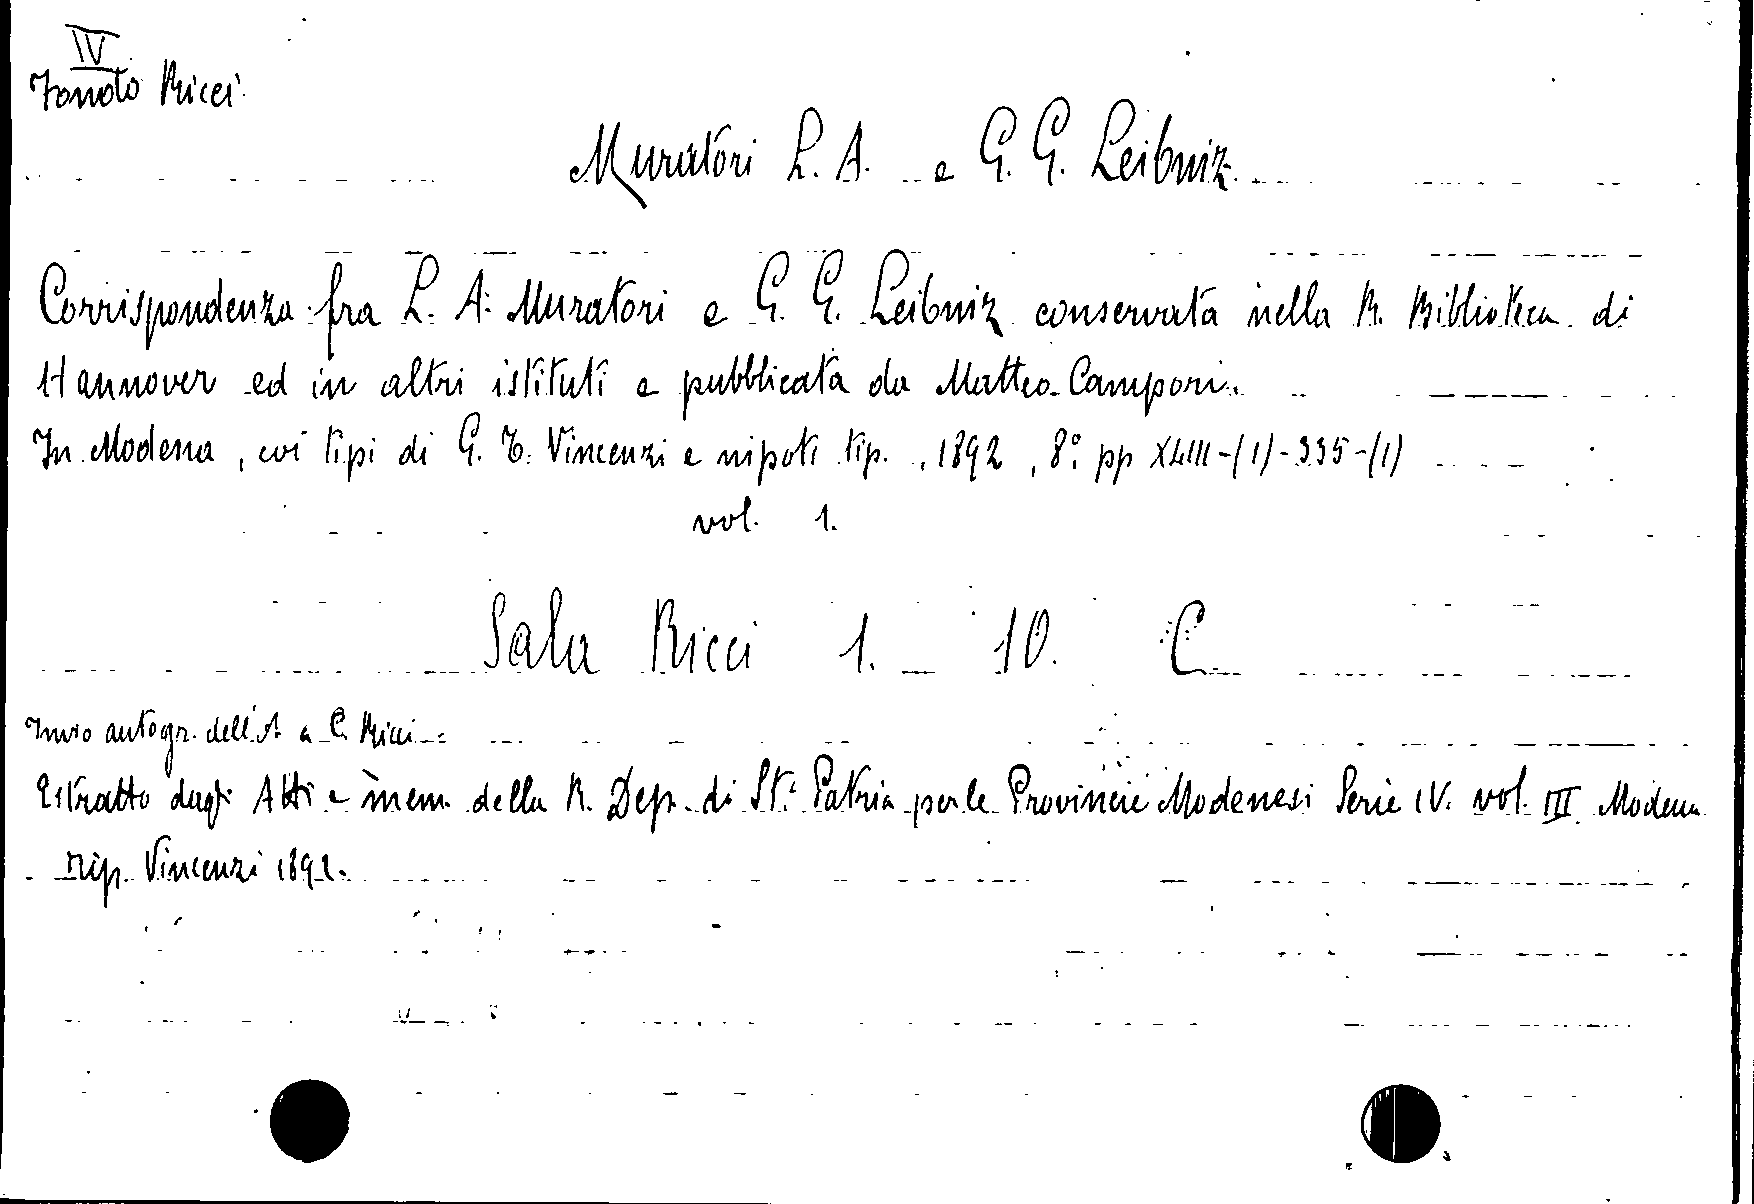 IV
Fondo Ricci
Muratori L. A. e G. G. Leibniz
Corrispondenza fra L. A. Muratori e G. G. Leibniz conservata nella R. Biblioteca di
Hannover ed in altri istituti e pubblicata da Matteo Campori.
In Modena, coi tipi di G. T. Vincenzi e nipoti tip., 1892, 8° pp XLIII-(1)-335-(1)
vol. 1.
Sala Ricci 1. 10. C
Invio autogr. dell'A a C. Ricci.
Estratto dagli Atti e mem. della R. Dep. di St. Patria per le Provincie Modenesi Serie IV. vol. III Modena
Tip. Vincenzi 1892.